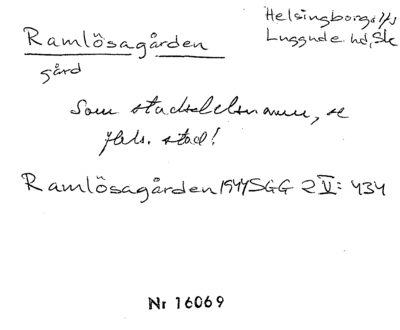 Ramlösagården
gård
Helsingborgs l/s
Luggude hd, Sk
Som stadsdelsnamn, se
Hels. stad!
Ramlösagården 1944 SGG 2 V: 434
Nr 16069